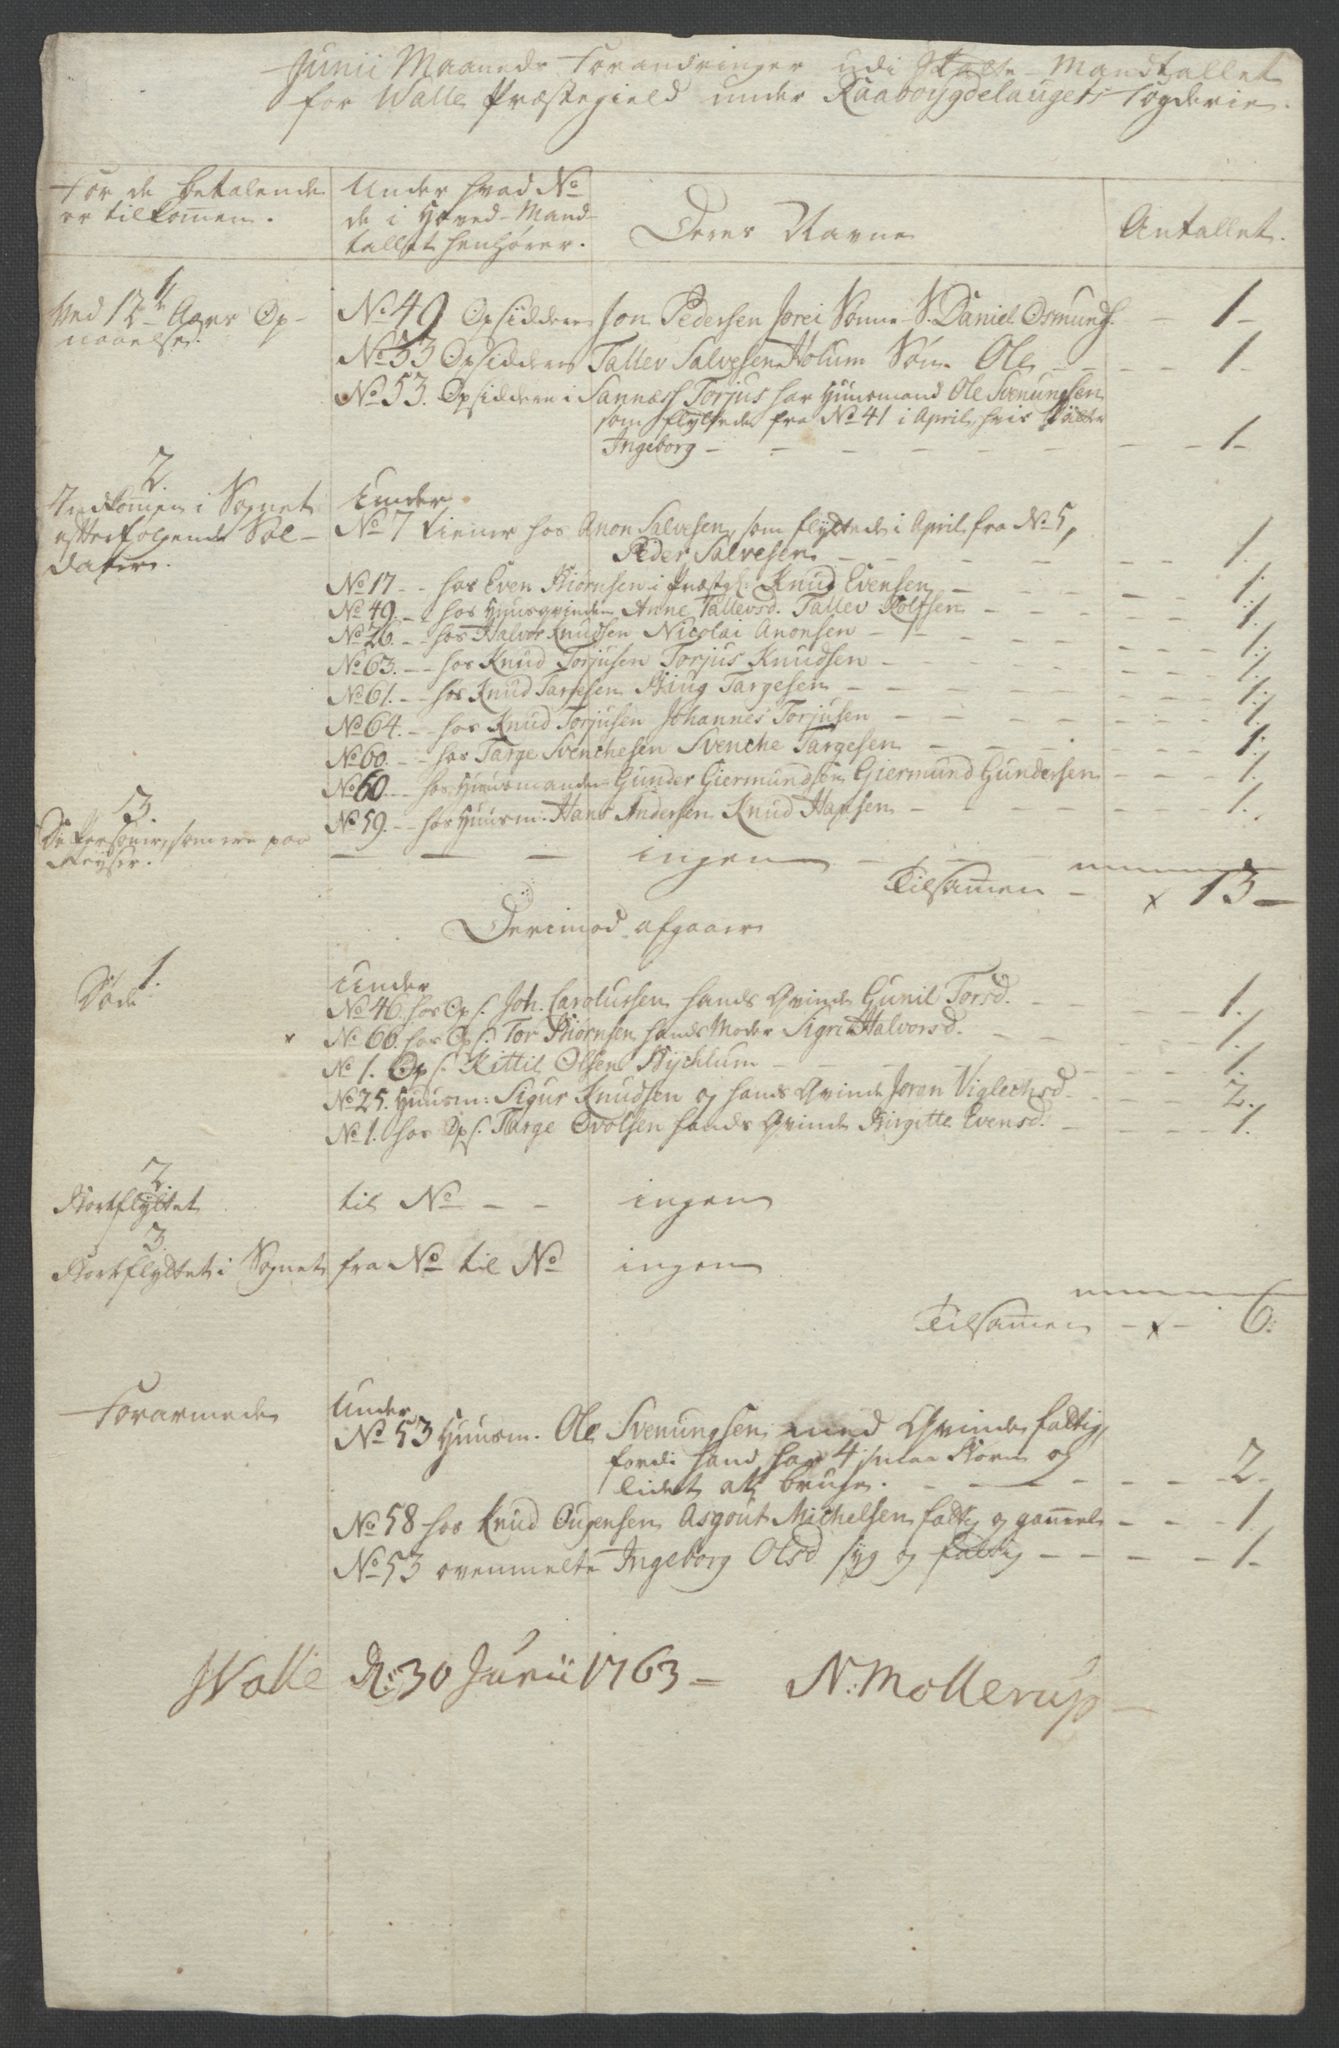 Junii Maaneds Forandringer udi Skatte-Mandtallet
for Walle Præstegield under Raabøygdelaugets Fogderie.
For de betalende er tilkom̄en.
Under hvad No de i Hoved-Mandtallet henhører.
Deres Navne
Antallet.
1
Ved 12te Aars Opnaaelse.
No 49 Opsidderen Jon Pedersen Jorei Sønne S. Daniel Osmunds. - 1-
No 33 Opsidderen Tallev Salvesen Holum Søn Ole - - - - 1-
No 53. Opsiddere i Sannæss Torjus har Huusmand Ole Svenungsen
som flyttede fra No 41 i April, hvis Datter
Ingeborg - - - - - - - - 1-
2.
Indkom̄en i Sognet
efterfølgende Soldater.
Under
No 7 tiener hos Anon Salvesen, som flyttede i April fra No 5,
Peder Salvesen - - - - - 1.
No 17 -- hos Even Biørnsen i Præstg: Knud Evensen - - - 1.
No 49. -- hos Huusqvinden Anne Tallevsd. Tallev Rolfsen - - - 1.
No 26. - hos Halvor Knudsen Nicolai Anonsen - - - - 1.
No 63. -- hos Knud Torjusen Torjus Knudsen - - - - 1.
No 61. - hos Knud Targesen Biug Targesen - - - - 1.
No 64. -- hos Knud Torjusen Johannes Torjusen - - - - 1.
No 60. -- hos Targe Svenchesen Svenche Targesen - - - - 1.
No 60. -- hos Huusmanden Gunder Giermundsen Giermund Gundersen - - - 1.
No 59. -- hos Huusm: Hans Andersen Knud Hansen - - - - 1.
3
De Personer, som ere paa
Reyser.
- - - ingen - - -
Tilsam̄en - x 13-
Derimod afgaaer
1.
Døde
Under
No 46. hos Ops. Joh. Carolussen hands Qvinde Gunil Torsd. - - - 1.
x No 60. hos Ops. Tor Biørnsen hands Moder Sigri Halvorsd. - - - 1.
No 1. Ops. Kittil Olsen Bychlum - - - - 1.
No 25. Huusm: Sigur Knudsen og hands Qvinde Joran Viglechsd - - - 2.
No 1. hos Ops. Targe Ovolsen hands Qvinde Birgitte Evensd. - - - 1.
2.
Bortflyttet
til No - - ingen
3
Bortflyttet i Sognet fra No til No ingen
Tilsam̄en - x - 6.
Forarmede
Under
No 53 Huusm. Ole Svenungsen med Qvinde fattig,
fordi hand har 4 smaa Børn og
lidet at bruge. - - - - - 2-
No 58 hos Knud Ougensen Asgout Michelsen fattig og gam̄el - - - 1-
No 53 ovenmelte Ingeborg Olsd syg og fattig - - - - 1-
Walle D: 30 Junii 1763 - N: Mollerup